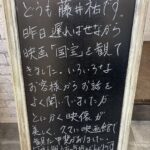 どうも藤井祐です。
昨日遅ればせながら
映画「国宝」を観て
きました。いろいろな
お客様からお話を
よく聞いていました が
とにかく映像が
美しく、久々に映画館で